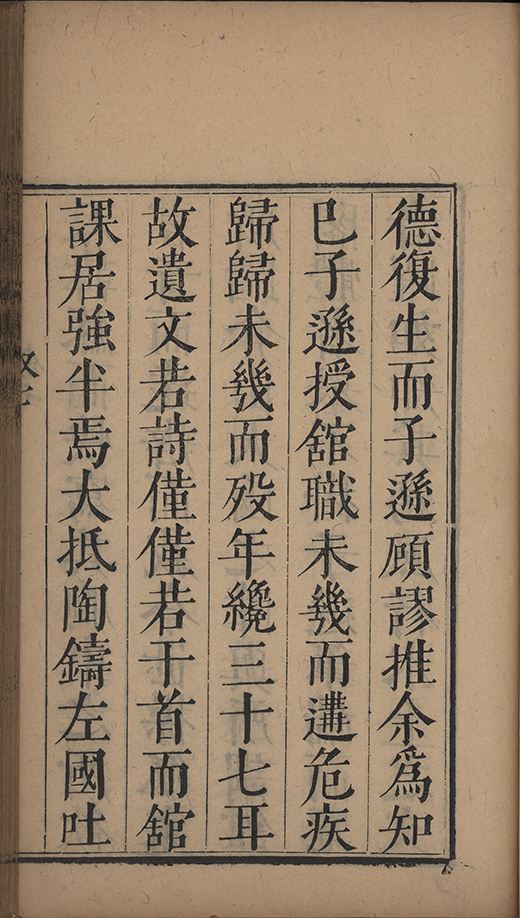 德復生而子遜顧謬推余爲知
巳子遜授舘職未㡬而遘危疾
歸歸未㡬而殁年纔三十七耳
故遺文若詩僅僅若干首而舘
課居強半焉大抵陶鑄左國吐